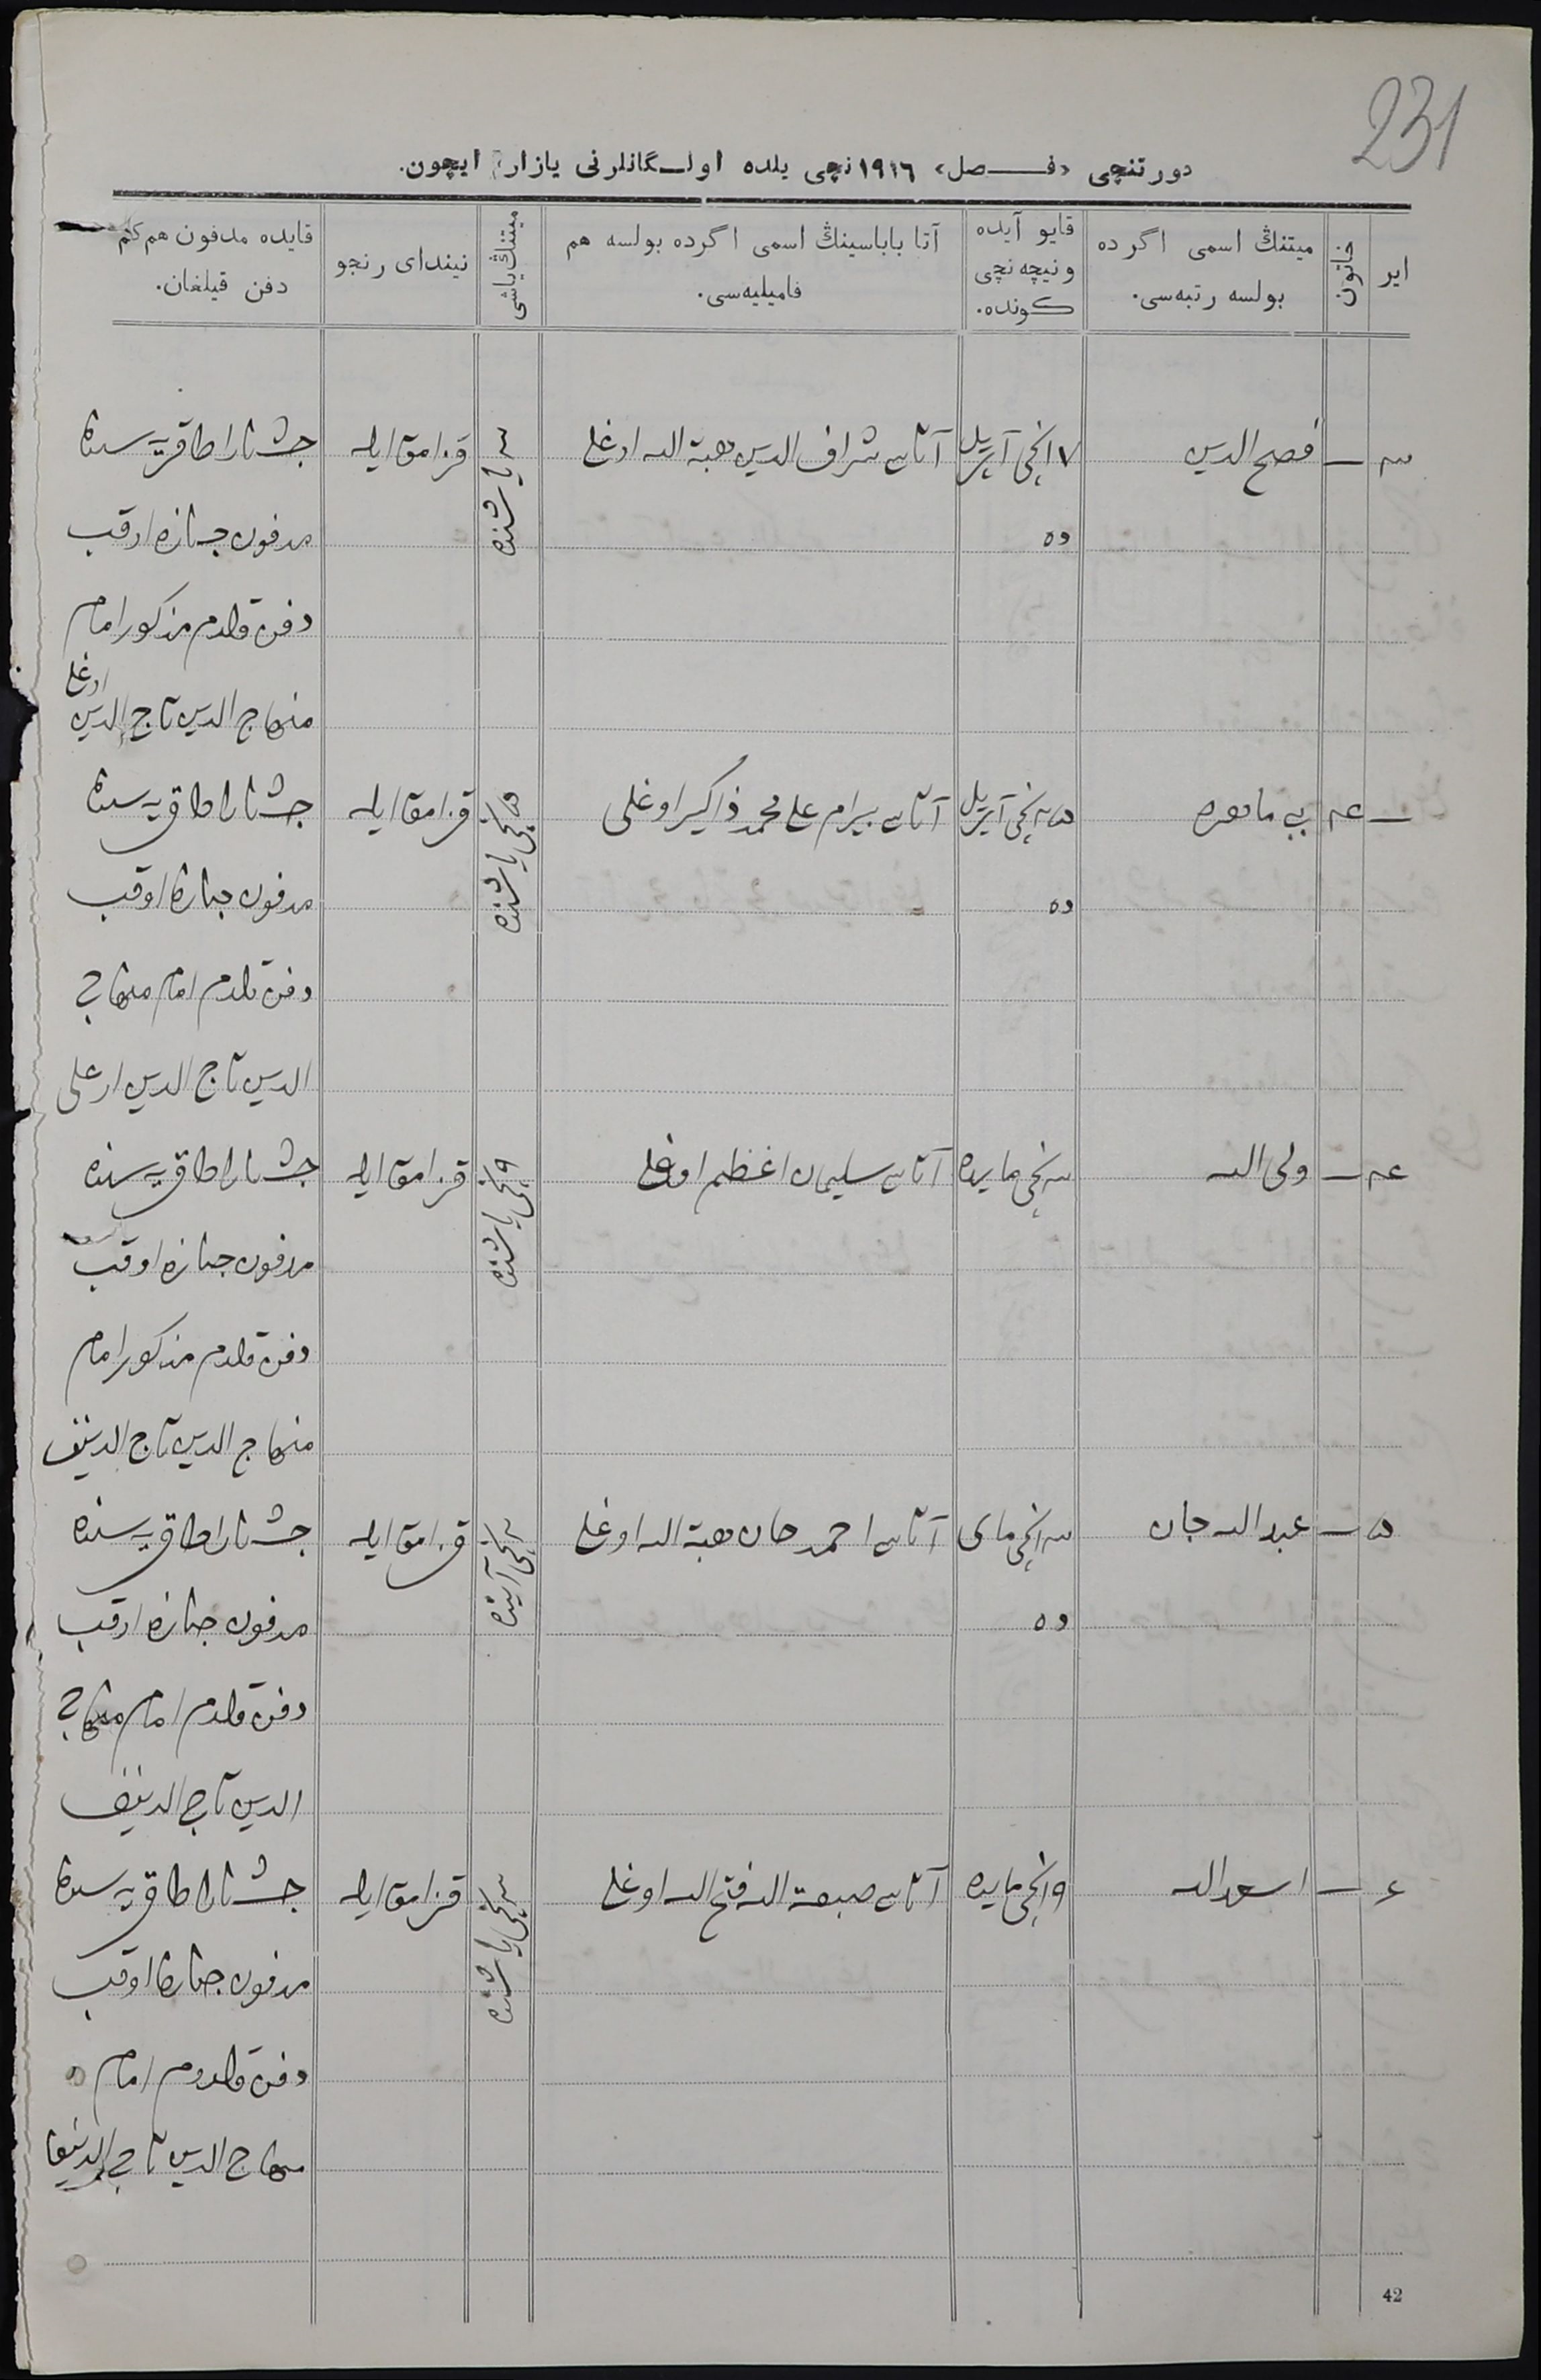 231
دورتنچی «فـــصل» ١٩١٦نچی یلده اولـگانلرنی یازار ایچون.
ایر
خاتون
میتنڭ اسمی اگر ده
بولسه رتبه‌سی.
قایو آیده
ونیچه نچی
کونده.
آتا باباسینڭ اسمی اگرده بولسه هم
فامیلیه‌سی.
میتنڭ یاشی
نیندای رنجو
قایده مدفون هم کم
دفن قیلغان.
فصح الدین
١٧نچی آپریل
ده
آتاسی شراف الدین هبة الله اوغلی
٣ یاشنده
قزامق ایله
مدفون جنازه اوقب
دفن قلدم مذکور امام
منهاج الدین تاج الدین اوغلی
بی ماهره
آتاسی بیرام علی محمد ذاکیر اوغلی
٥نچی یاشنده
قزامق ایله
ده
مدفون جنازه اوقب
دفن قلدم امام منهاج
الدین تاج الدین اوغلی
ولی الله
٣نچی مایده
آتاسی سلیمان اغظم اوغلی
٩نچی یاشنده
قزامق ایله
مدفون جنازه اوقب
دفن قلدم مذکور امام
منهاج الدین تاج الدینف
٥ — عبدالله جان
مای
ده
آتاسی احمد جان هبة الله اوغلی
قزامق ایله
مدفون جنازه اوقب
دفن قلدم امام منهاج
الدین تاج الدینف
اسعد الله
١٩نچی مایده
آتاسی صبعة الله فتح الله اوغلی
٣نچی یاشنده
قزامق ایله
مدفون جنازه اوقب
دفن قلدوم امام
منهاج الدین تاج الدینف
42